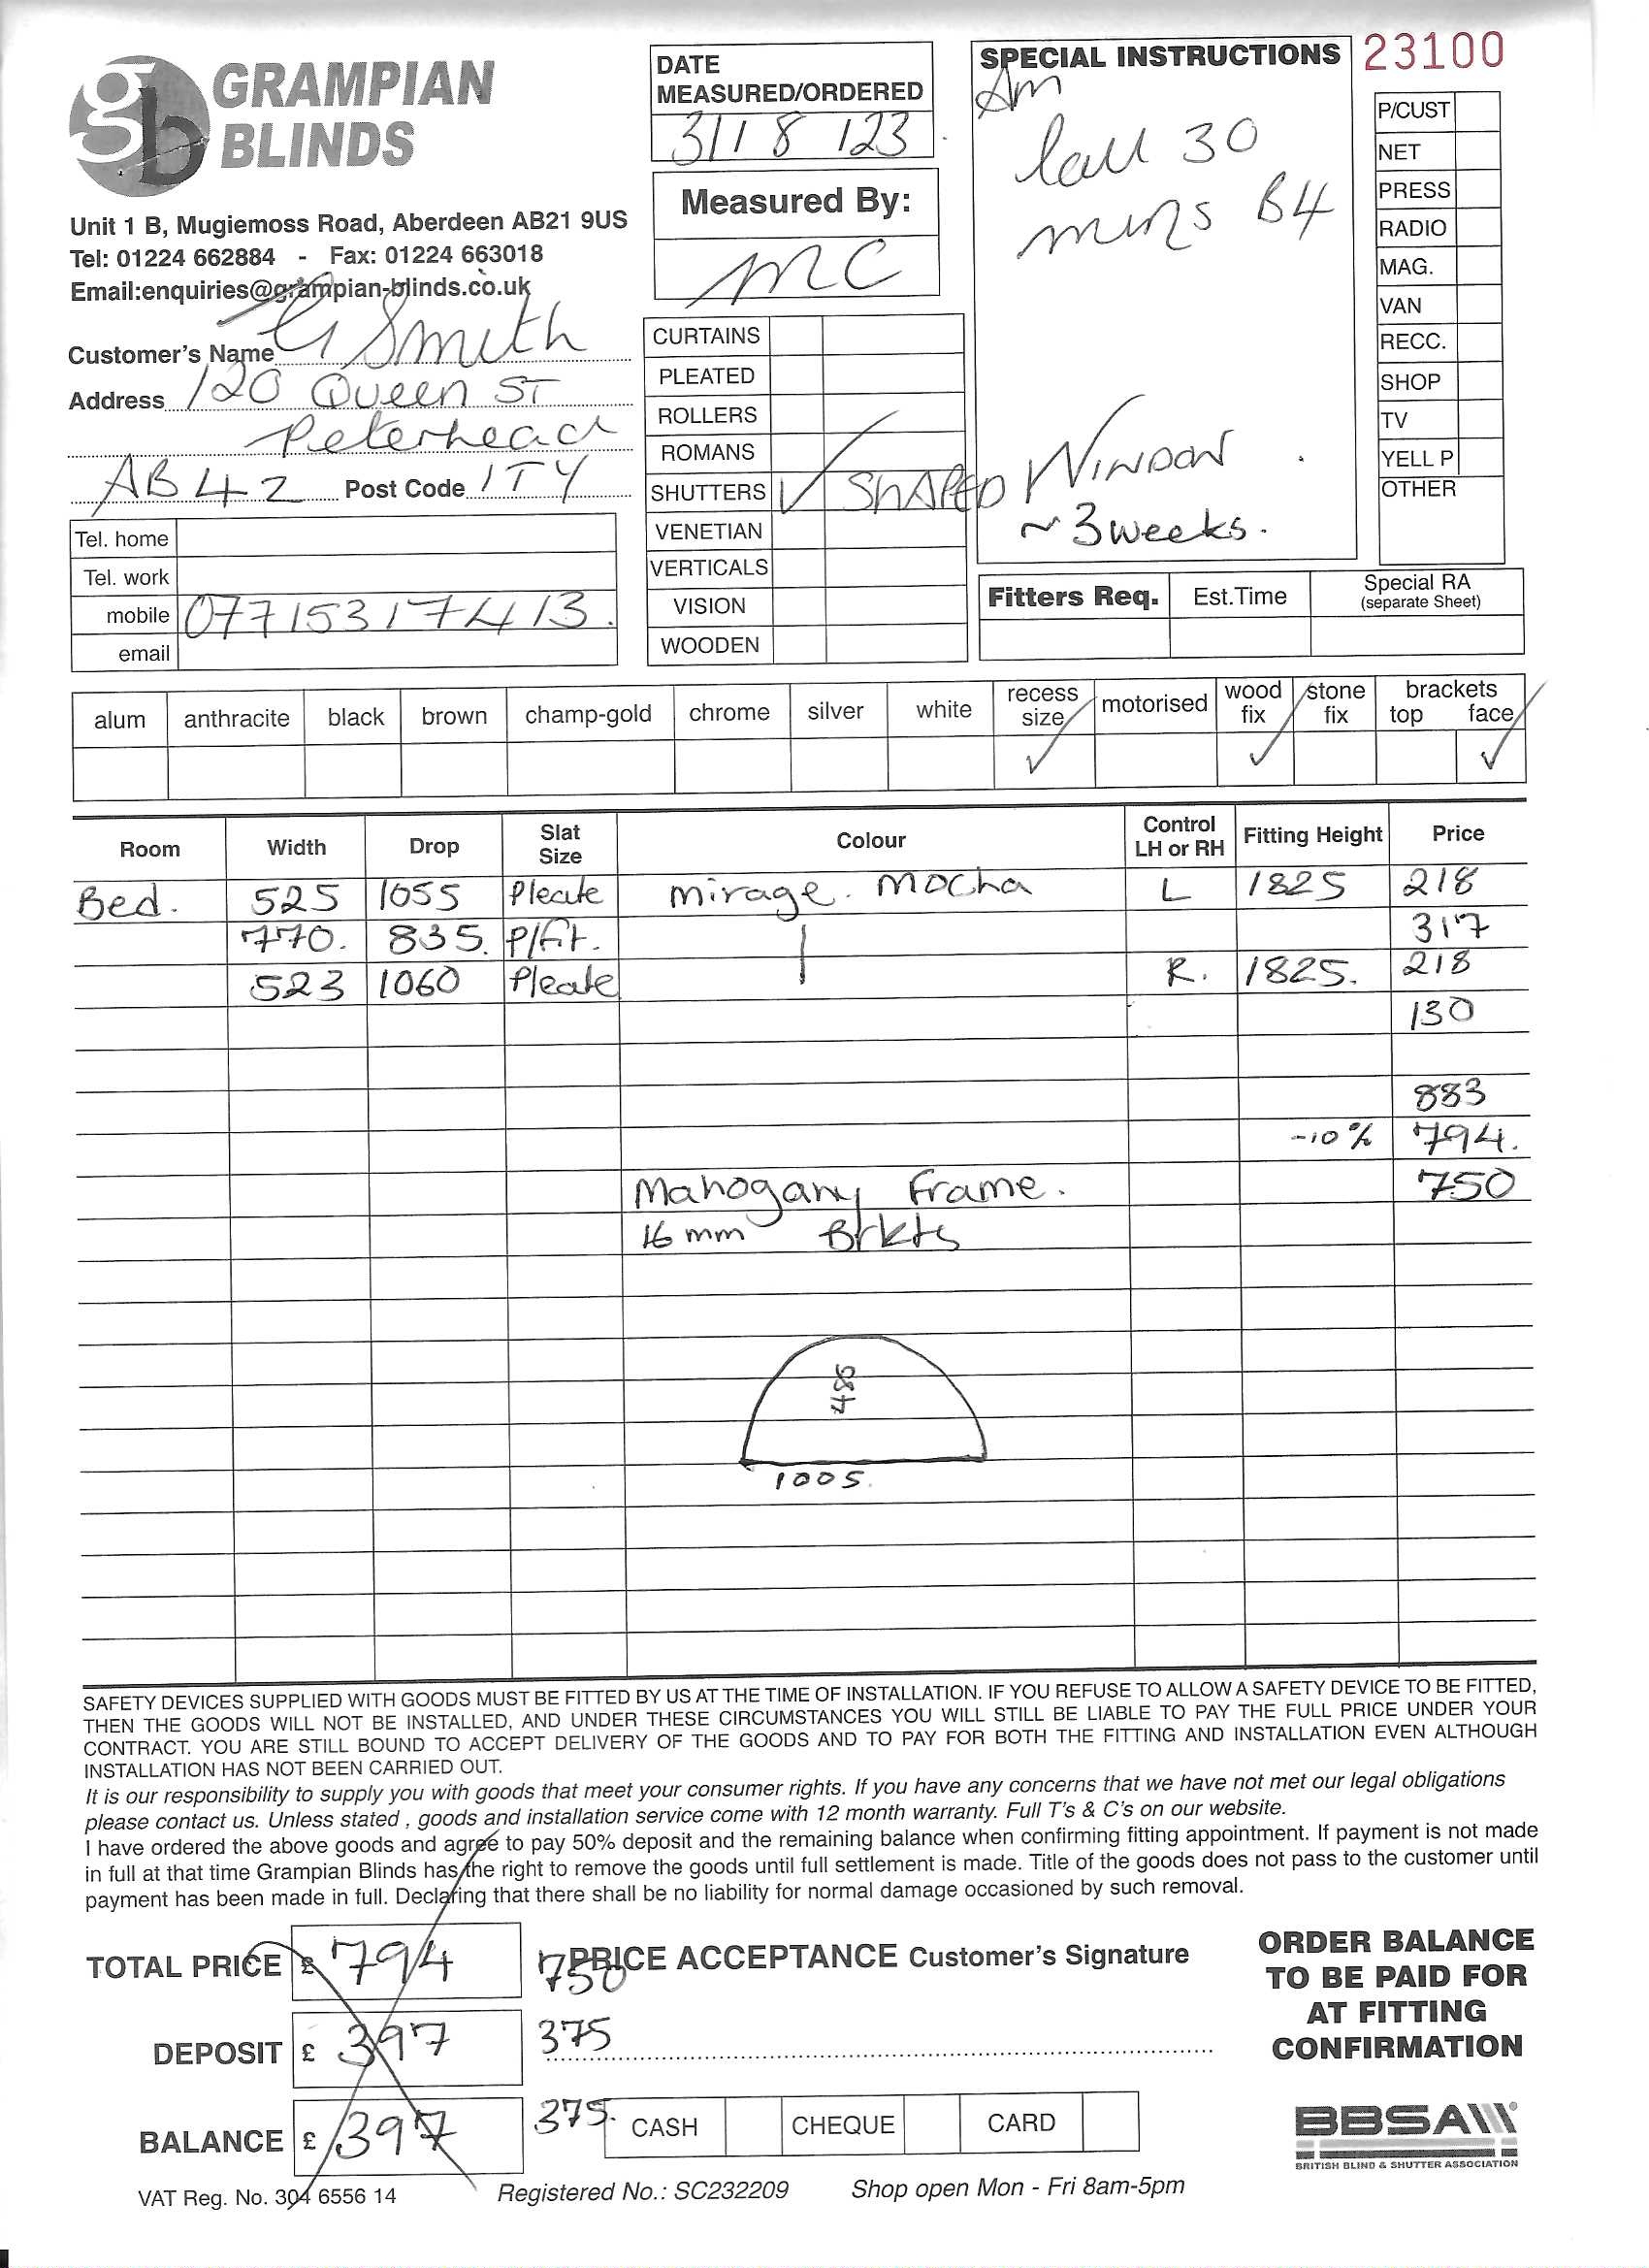 GRAMPIAN
BLINDS
Unit 1 B, Mugiemoss Road, Aberdeen AB21 9US
Tel: 01224 662884 - Fax: 01224 663018
Email:enquiries@grampian-blinds.co.uk
Customer's Name G Smith
Address 120 Queen ST
Peterhead
AB42 Post Code 1TY
Tel. home
Tel. work
mobile 07715317413.
email
DATE
MEASURED/ORDERED
31 / 8 / 23
Measured By:
MC
CURTAINS
PLEATED
ROLLERS
ROMANS
SHUTTERS ✓ SHAPED WINDOW
VENETIAN
VERTICALS
VISION
WOODEN
SPECIAL INSTRUCTIONS
Am
Call 30
mins B4
~ 3 weeks.
23100
P/CUST
NET
PRESS
RADIO
MAG.
VAN
RECC.
SHOP
TV
YELL P
OTHER
Fitters Req. Est.Time Special RA
(separate Sheet)
alum anthracite black brown champ-gold chrome silver white recess size motorised wood fix stone fix brackets top face
✓ ✓ ✓
Room Width Drop Slat Size Colour Control LH or RH Fitting Height Price
Bed. 525 1055 Pleate Mirage. MOCHA L 1825 218
770. 835. P/Fit. 317
523 1060 Pleate R. 1825. 218
130
883
-10% 794.
Mahogany Frame. 750
16mm Brkts
485
1005.
SAFETY DEVICES SUPPLIED WITH GOODS MUST BE FITTED BY US AT THE TIME OF INSTALLATION. IF YOU REFUSE TO ALLOW A SAFETY DEVICE TO BE FITTED,
THEN THE GOODS WILL NOT BE INSTALLED, AND UNDER THESE CIRCUMSTANCES YOU WILL STILL BE LIABLE TO PAY THE FULL PRICE UNDER YOUR
CONTRACT. YOU ARE STILL BOUND TO ACCEPT DELIVERY OF THE GOODS AND TO PAY FOR BOTH THE FITTING AND INSTALLATION EVEN ALTHOUGH
INSTALLATION HAS NOT BEEN CARRIED OUT.
It is our responsibility to supply you with goods that meet your consumer rights. If you have any concerns that we have not met our legal obligations
please contact us. Unless stated , goods and installation service come with 12 month warranty. Full T's & C's on our website.
I have ordered the above goods and agree to pay 50% deposit and the remaining balance when confirming fitting appointment. If payment is not made
in full at that time Grampian Blinds has the right to remove the goods until full settlement is made. Title of the goods does not pass to the customer until
payment has been made in full. Declaring that there shall be no liability for normal damage occasioned by such removal.
TOTAL PRICE £ 794 750 PRICE ACCEPTANCE Customer's Signature
DEPOSIT £ 397 375
BALANCE £ 397 375. CASH CHEQUE CARD
ORDER BALANCE
TO BE PAID FOR
AT FITTING
CONFIRMATION
BBSA
BRITISH BLIND & SHUTTER ASSOCIATION
VAT Reg. No. 304 6556 14 Registered No.: SC232209 Shop open Mon - Fri 8am-5pm